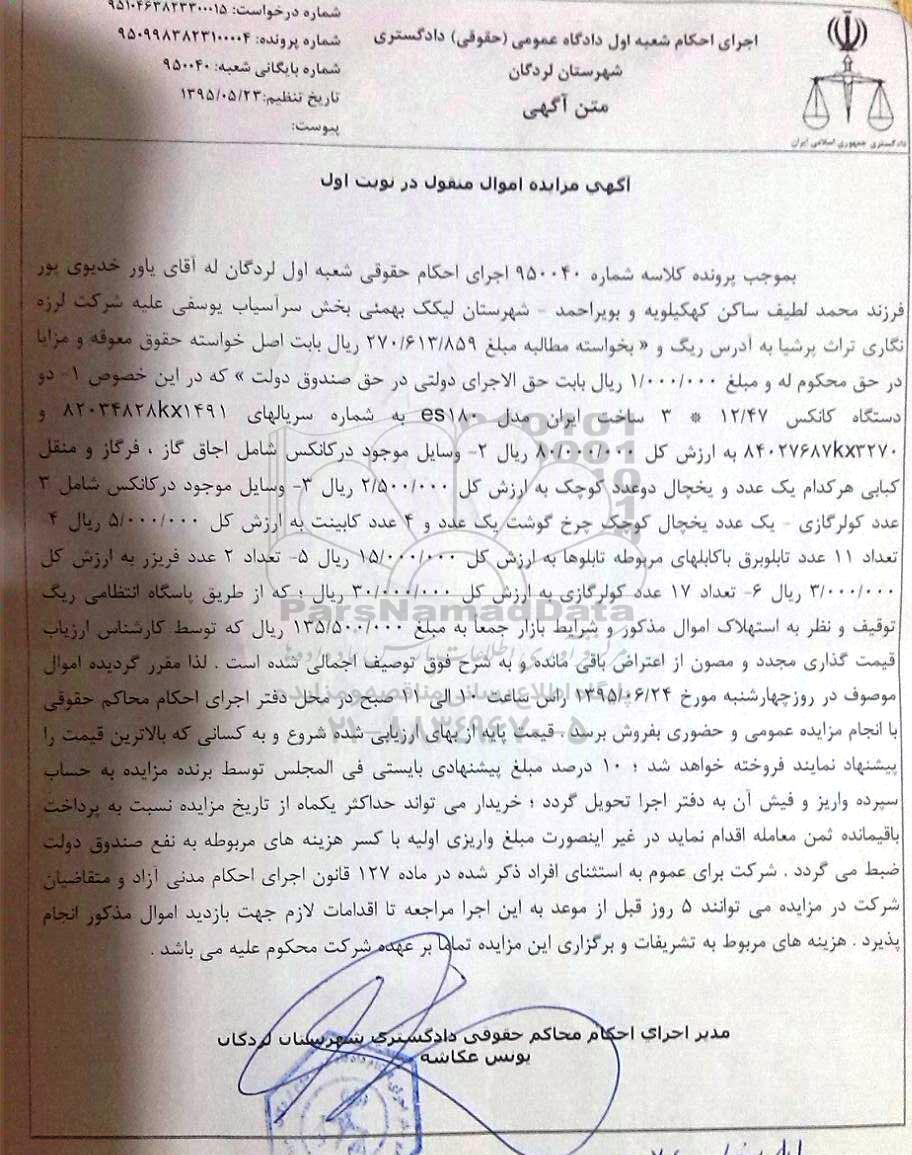 شماره درخواست: ۹۵۱۰۴۶۳۸۲۳۳۰۰۰۱۵
اجرای احکام شعبه اول دادگاه عمومی (حقوقی) دادگستری
شماره پرونده: ۹۵۰۹۹۸۳۸۲۳۱۰۰۰۰۴
شهرستان لردگان
شماره بایگانی شعبه: ۹۵۰۰۴۰
متن آگهی
تاریخ تنظیم: ۱۳۹۵/۰۵/۲۳
پیوست:
دادگستری جمهوری اسلامی ایران
آگهي مزایده اموال منقول در نوبت اول
بموجب پرونده کلاسه شماره ۹۵۰۰۴۰ اجرای احکام حقوقی شعبه اول لردگان له آقای یاور خدیوی پور
فرزند محمد لطیف ساکن کهکیلویه و بویراحمد - شهرستان لیکک بهمئی بخش سرآسیاب یوسفی علیه شرکت لرزه
نگاری تراث پرشیا به آدرس ریگ و « بخواسته مطالبه مبلغ ۲۷۰/۶۱۳/۸۵۹ ریال بابت اصل خواسته حقوق معوقه و مزایا
در حق محکوم له و مبلغ ۱/۰۰۰/۰۰۰ ریال بابت حق الاجرای دولتی در حق صندوق دولت » که در این خصوص ۱- دو
دستگاه کانکس ۱۲/۴۷ * ۳ ساخت ایران مدل es۱۸۰ به شماره سریالهای ۸۲۰۳۴۸۲۸kx۱۴۹۱ و
۸۴۰۲۷۶۸۷kx۳۲۷۰ به ارزش کل ۸۰/۰۰۰/۰۰۰ ریال ۲- وسایل موجود درکانکس شامل اجاق گاز ، فرگاز و منقل
کبابی هرکدام یک عدد و یخچال دوعدد کوچک به ارزش کل ۲/۵۰۰/۰۰۰ ریال ۳- وسایل موجود درکانکس شامل ۳
عدد کولرگازی - یک عدد یخچال کوچک چرخ گوشت یک عدد و ۴ عدد کابینت به ارزش کل ۵/۰۰۰/۰۰۰ ریال ۴
تعداد ۱۱ عدد تابلوبرق باکابلهای مربوطه تابلوها به ارزش کل ۱۵/۰۰۰/۰۰۰ ریال ۵- تعداد ۲ عدد فریزر به ارزش کل
۳/۰۰۰/۰۰۰ ریال ۶- تعداد ۱۷ عدد کولرگازی به ارزش کل ۳۰/۰۰۰/۰۰۰ ریال ؛ که از طریق پاسگاه انتظامی ریگ
ParsNamadData
توقیف و نظر به استهلاک اموال مذکور و شرایط بازار جمعا به مبلغ ۱۳۵/۵۰۰/۰۰۰ ریال که توسط کارشناس ارزیاب
قیمت گذاری مجدد و مصون از اعتراض باقی مانده و به شرح فوق توصیف اجمالی شده است . لذا مقرر گردیده اموال
موصوف در روزچهارشنبه مورخ ۱۳۹۵/۰۶/۲۴ راس ساعت ۱۰ الی ۱۱ صبح در محل دفتر اجرای احکام محاکم حقوقی
۰۲۱-۸۸۳۴۹۶۷۰-۵
با انجام مزایده عمومی و حضوری بفروش برسد . قیمت پایه از بهای ارزیابی شده شروع و به کسانی که بالاترین قیمت را
پیشنهاد نمایند فروخته خواهد شد ؛ ۱۰ درصد مبلغ پیشنهادی بایستی فی المجلس توسط برنده مزایده به حساب
سپرده واریز و فیش آن به دفتر اجرا تحویل گردد ؛ خریدار می تواند حداکثر یکماه از تاریخ مزایده نسبت به پرداخت
باقیمانده ثمن معامله اقدام نماید در غیر اینصورت مبلغ واریزی اولیه با کسر هزینه های مربوطه به نفع صندوق دولت
ضبط می گردد . شرکت برای عموم به استثنای افراد ذکر شده در ماده ۱۲۷ قانون اجرای احکام مدنی آزاد و متقاضیان
شرکت در مزایده می توانند ۵ روز قبل از موعد به این اجرا مراجعه تا اقدامات لازم جهت بازدید اموال مذکور انجام
پذیرد . هزینه های مربوط به تشریفات و برگزاری این مزایده تماما بر عهده شرکت محکوم علیه می باشد .
مدیر اجرای احکام محاکم حقوقی دادگستری شهرستان لردگان
یونس عکاشه